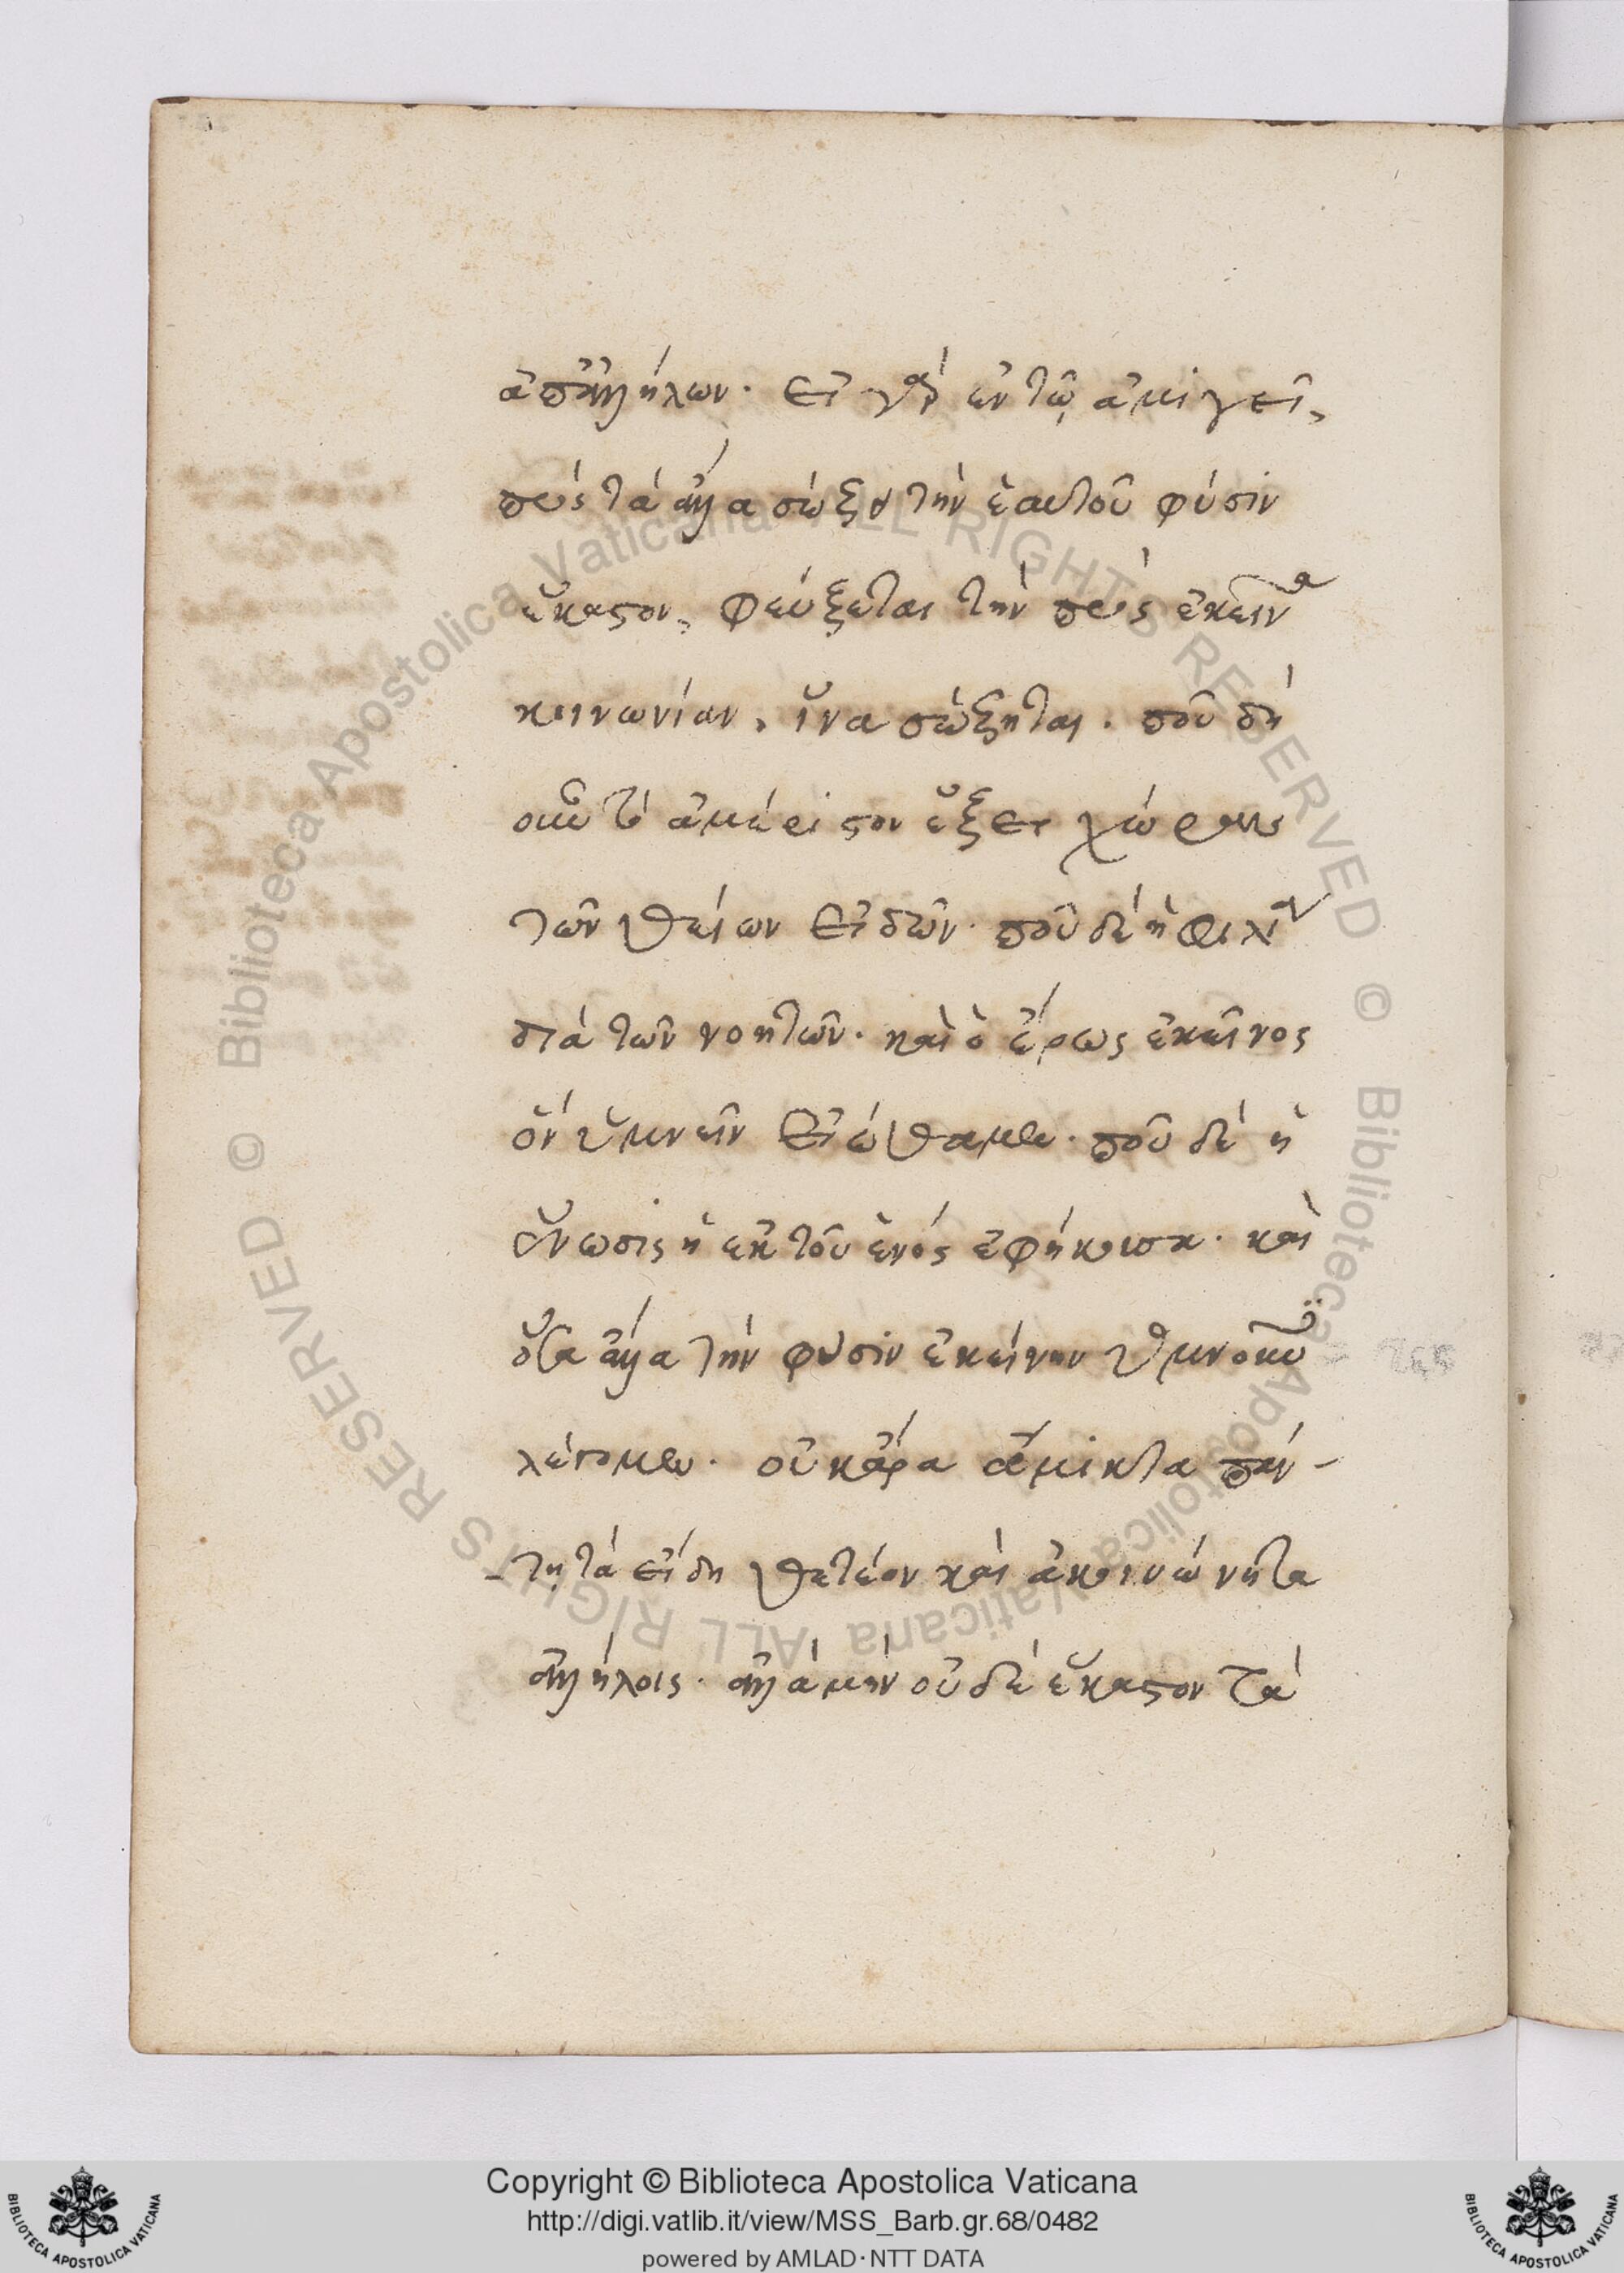 ἀπἀλλήλων. εἰ γὰρ ἐν τῷ ἀμιγεῖ,
πρὸς τὰ ἄλλα σώζει τὴν ἑαυτοῦ φύσιν
ἕκαστον, φεύξεται τὴν πρὸς ἐκεῖνα
κοινωνίαν, ἵνα σώζηται. ποῦ δὴ
οὖν τὸ ἀμέριστον ἕξει χώραν
τῶν θείων εἰδῶν. ποῦ δὲ ἡ φιλία
διὰ τῶν νοητῶν. καὶ ὁ ἔρως ἐκεῖνος
ὃν ὑμνεῖν εἰώθαμεν. ποῦ δὲ ἡ
ἕνωσις ἡ ἐκ τοῦ ἑνὸς ἐφήκουσα. καὶ
ὅσα ἄλλα τὴν φύσιν ἐκείνην ὑμνοῦν
λέγομεν. οὐκ ἄρα ἄμικτα πάν-
-τῃ τὰ εἴδη θετέον καὶ ἀκοινώνητα
ἀλλήλοις. ἀλλὰ μὴν οὐδὲ ἕκαστον τὰ
Copyright © Biblioteca Apostolica Vaticana
http://digi.vatlib.it/view/MSS_Barb.gr.68/0482
powered by AMLAD·NTT DATA
BIBLIOTECA APOSTOLICA VATICANA
BIBLIOTECA APOSTOLICA VATICANA
© Biblioteca Apostolica Vaticana ALL RIGHTS RESERVED © Biblioteca Apostolica Vaticana ALL RIGHTS RESERVED